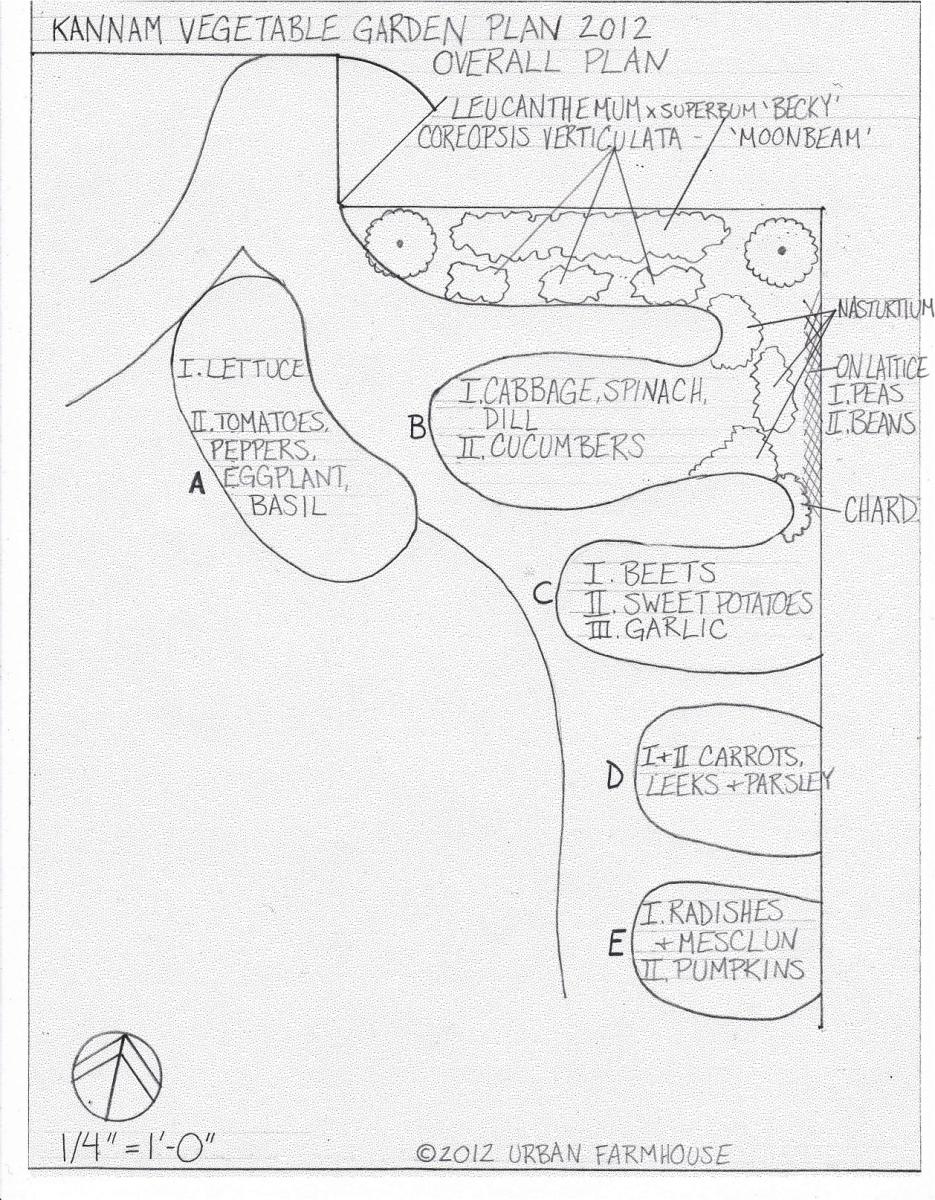 KANNAM VEGETABLE GARDEN PLAN 2012
OVERALL PLAN
LEUCANTHEMUM x SUPERBUM 'BECKY'
COREOPSIS VERTICULATA - 'MOONBEAM'
NASTURTIUM
ON LATTICE
I. PEAS
II. BEANS
CHARD
A
I. LETTUCE
II. TOMATOES,
PEPPERS,
EGGPLANT,
BASIL
B
I. CABBAGE, SPINACH,
DILL
II. CUCUMBERS
C
I. BEETS
II. SWEET POTATOES
III. GARLIC
D
I+II CARROTS,
LEEKS + PARSLEY
E
I. RADISHES
+ MESCLUN
II. PUMPKINS
1/4" = 1'-0"
©2012 URBAN FARMHOUSE